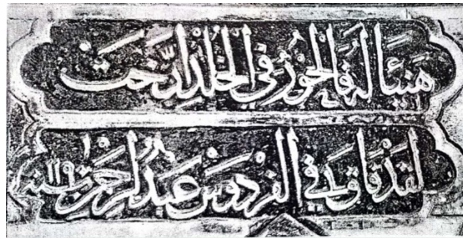 هنيئا له فالحور في الخلد ارخت
لقد فاق في الفردوس عبد الرحمن سنة ١١٩١